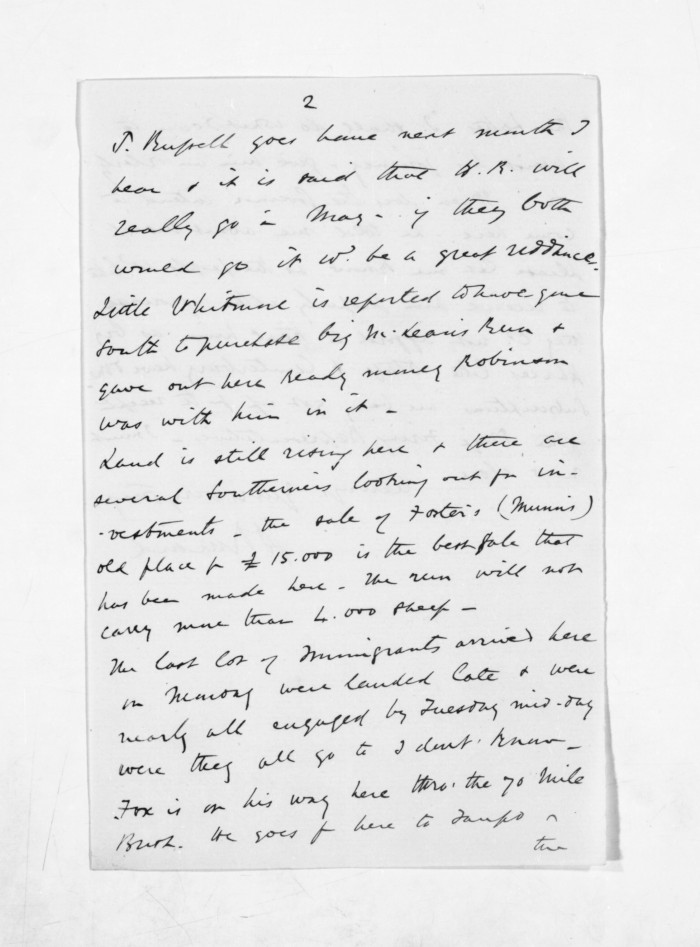 2
J. Russell goes home next month I
hear & it is said that H. R. will
really go in May - if they both
would go it wd. be a great riddance.
Little Whitmore is reported to have gone
South to purchase big McLean's Run &
gave out here Ready money Robinson
was with him in it -
Land is still rising here & there are
several Southerners looking out for in-
-vestments - the sale of Foster's (Munn's)
old place for £15.000 is the best sale that
has been made here - The run will not
carry more than 4.000 sheep -
The last lot of Immigrants arrived here
on Monday were landed late & were
nearly all engaged by Tuesday mid-day
were they all go to I dont know -
Fox is on his way here thro' the 70 Mile
Bush. He goes f here to Taupo
the